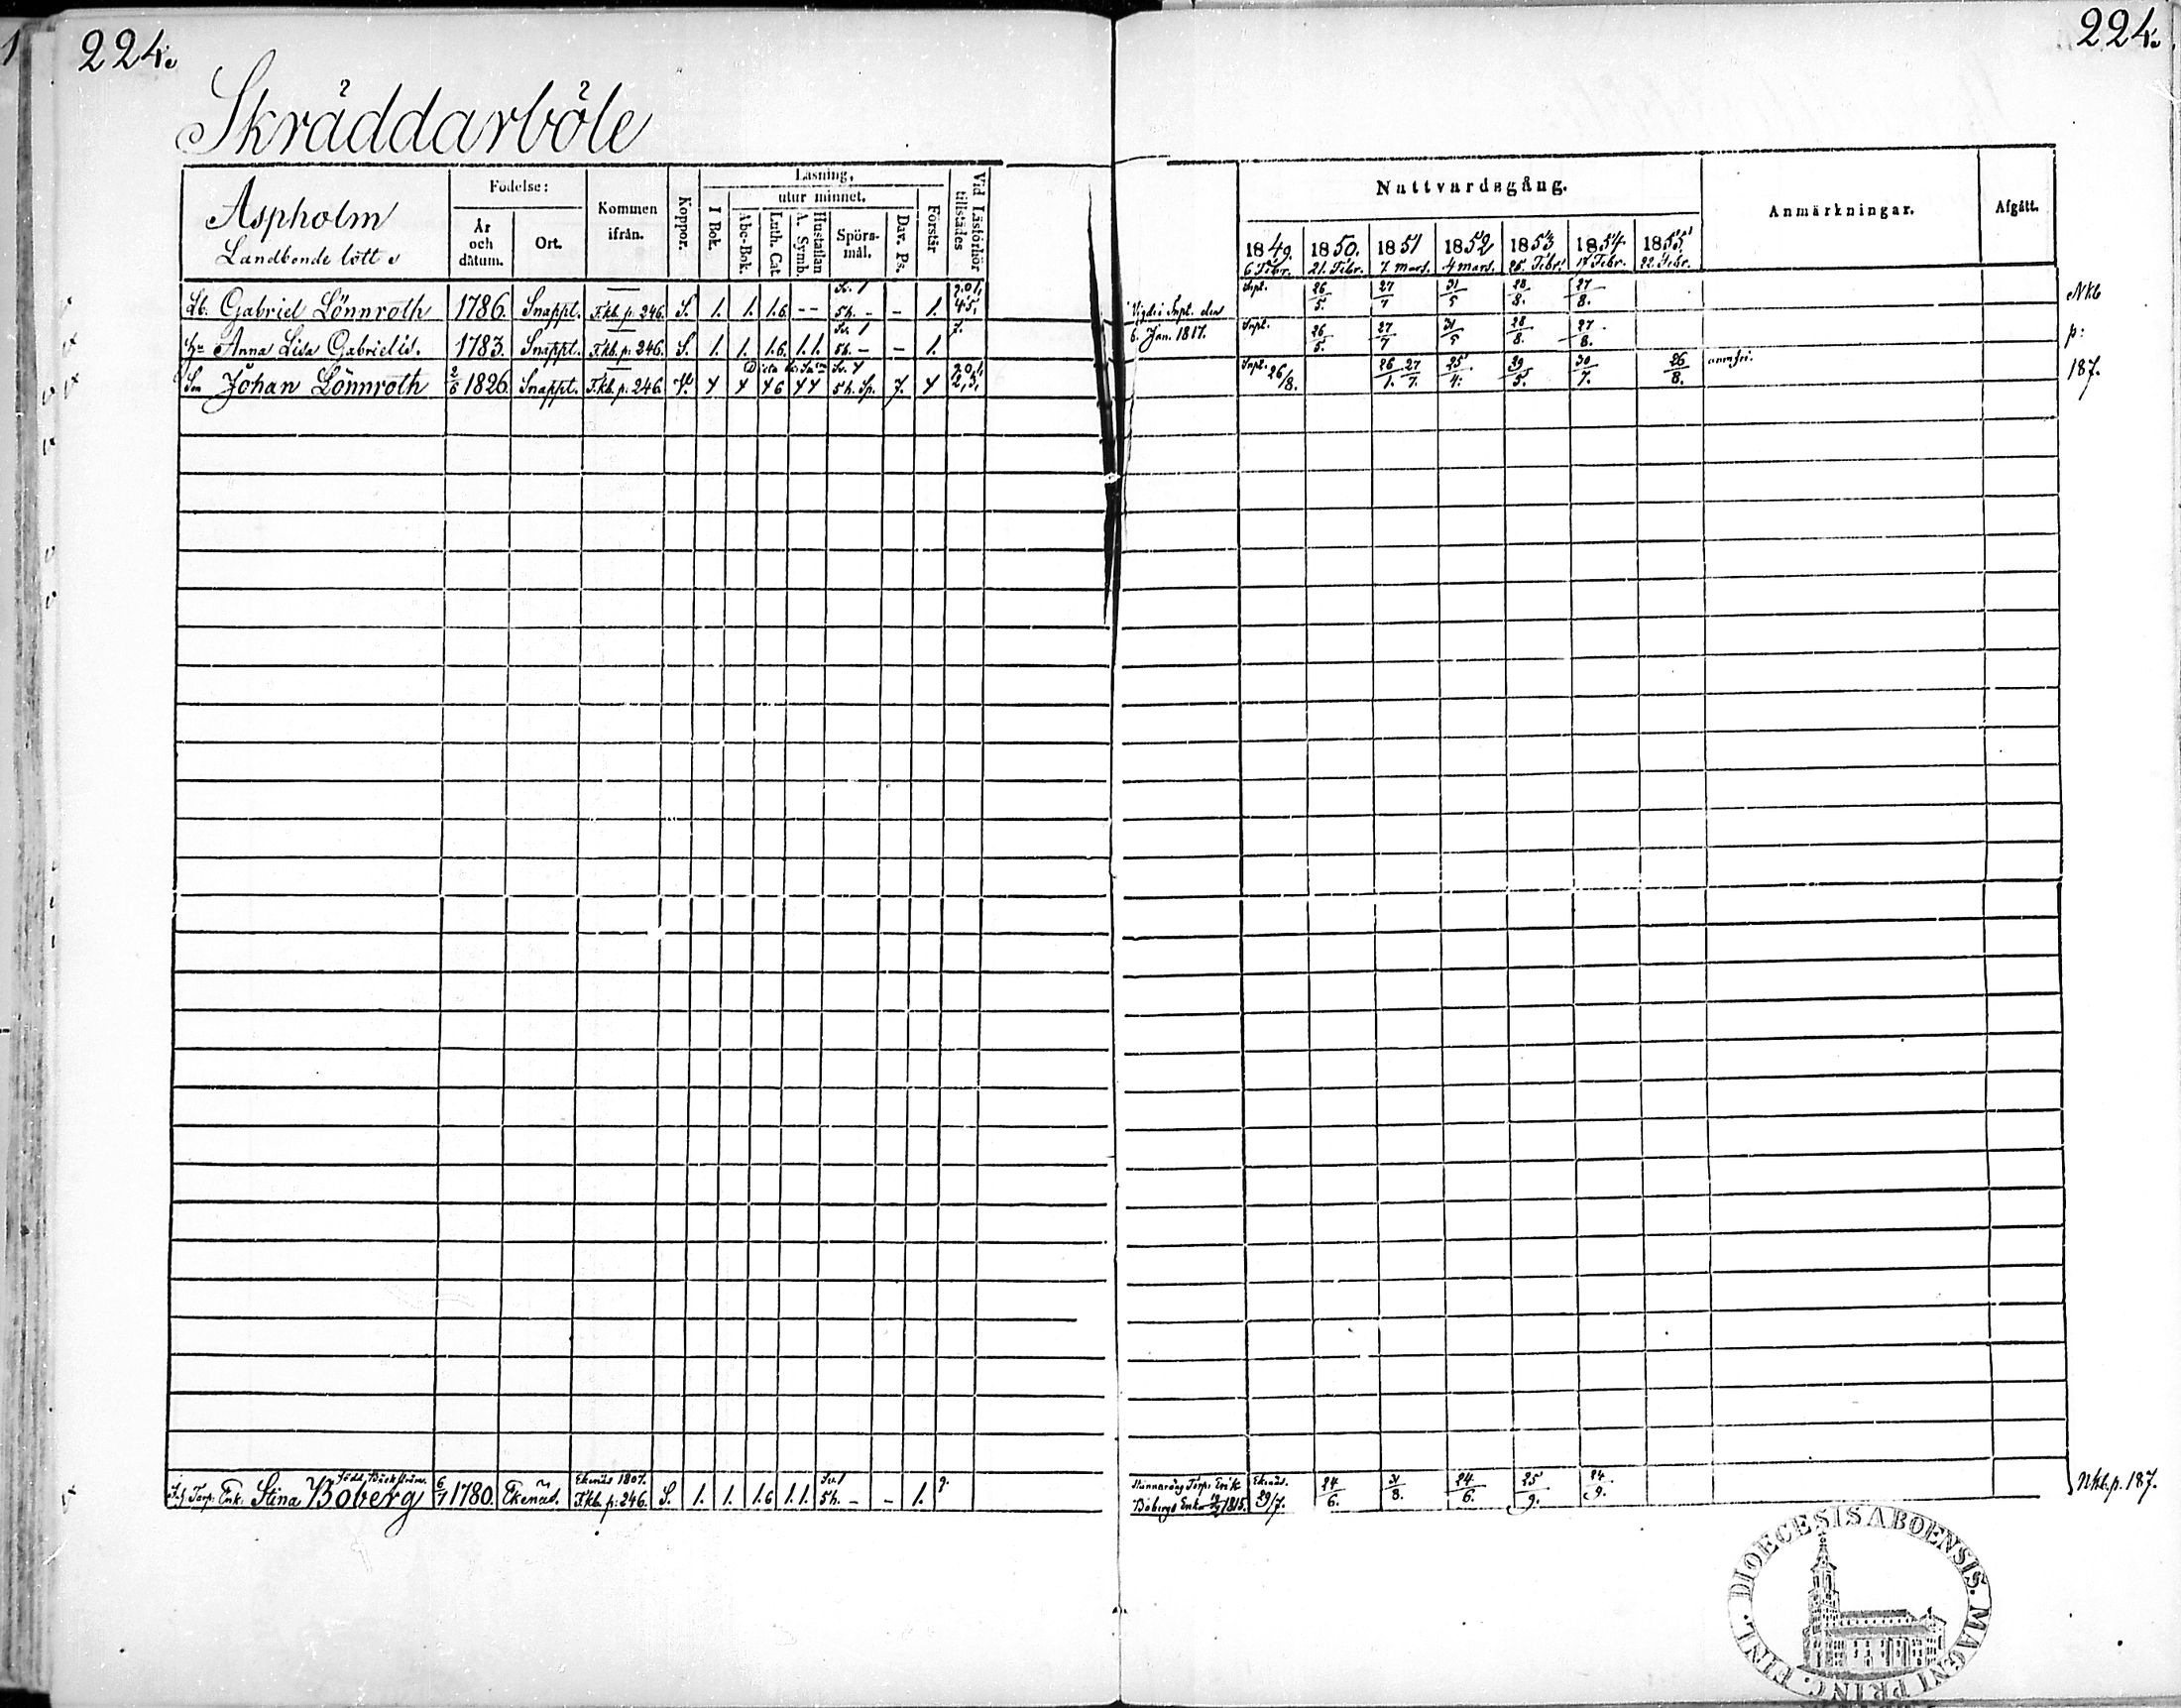 224.
224.
Skräddarböle
Aspholm
Landbonde lott
Födelse:
År och dåtum.
Ort.
Kommen ifrån.
Koppor.
Läsning,
utur minnet.
I Bok.
Abc-Bok.
Luth. Cat
Hustaflan A. Symb.
Spörs-mål.
Dav. Ps.
Förstår
Vid Läsförhör tillstädes
Nattvardsgång.
Anmärkningar.
Afgått.
1849. 1850. 1851 1852 1853 1854. 1855
6 Febr. 21. Febr. 7. Mars. 4 Mars. 25. Febr. 17 Febr. 22. Febr.
Lb. Gabriel Lönnroth 1786. Snappt. F.kb. p. 246. S. 1. 1. 1.6. - - Sv. 1 5h. - - 1. Vigde i Snpt. den Snpt. 26/5. 27/7 31/5 28/8. 27/8. Nkb
Hu Anna Lisa Gabrielsd. 1783. Snappt. F.kb. p. 246. S. 1. 1. 1.6. 1.1. Sv. 1 5h. - - 1. 7. 6. Jan. 1817. Snpt. 26/5. 27/7 31/5 28/8. 27/8. p:
Son Johan Lönnroth 2/6 1826. Snappt. F.kb. p. 246. Sv. 4 5h. Sp. 7. Snpt. 26/8. 26/1. 27/7. 25/4. 29/5. 30/7. 26/8. anm.fri. 187.
Torp. Enk. Stina Boberg född Bäckström. 6/7 1780. Ekenäs. Ekenäs 1807. F.kb. p: 246. S. 1. 1. 1.6 1.1. Sv. 1 5h. - - 1. 9. Torp. Erik Bobergs Enka 1815. Ekenäs. 29/7. 24/6. 31/8. 24/6. 25/9. 24/9. Nkb. p. 187.
FINL. DIOECESIS ABOENSIS. MAGNI PRINC.